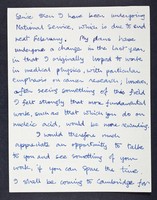 Since then I have been undergoing
National Service, which is due to end
next February. My plans have
undergone a change in the last year,
in that I originally hoped to work
in medical physics, with particular
emphasis on cancer research; however,
after seeing something of this field
I felt strongly that more fundamental
work, such as that which you do on
nucleic acid, would be more rewarding.
I would therefore much
appreciate an opportunity to talk
to you and see something of your
work, if you can spare the time.
I shall be coming to Cambridge for